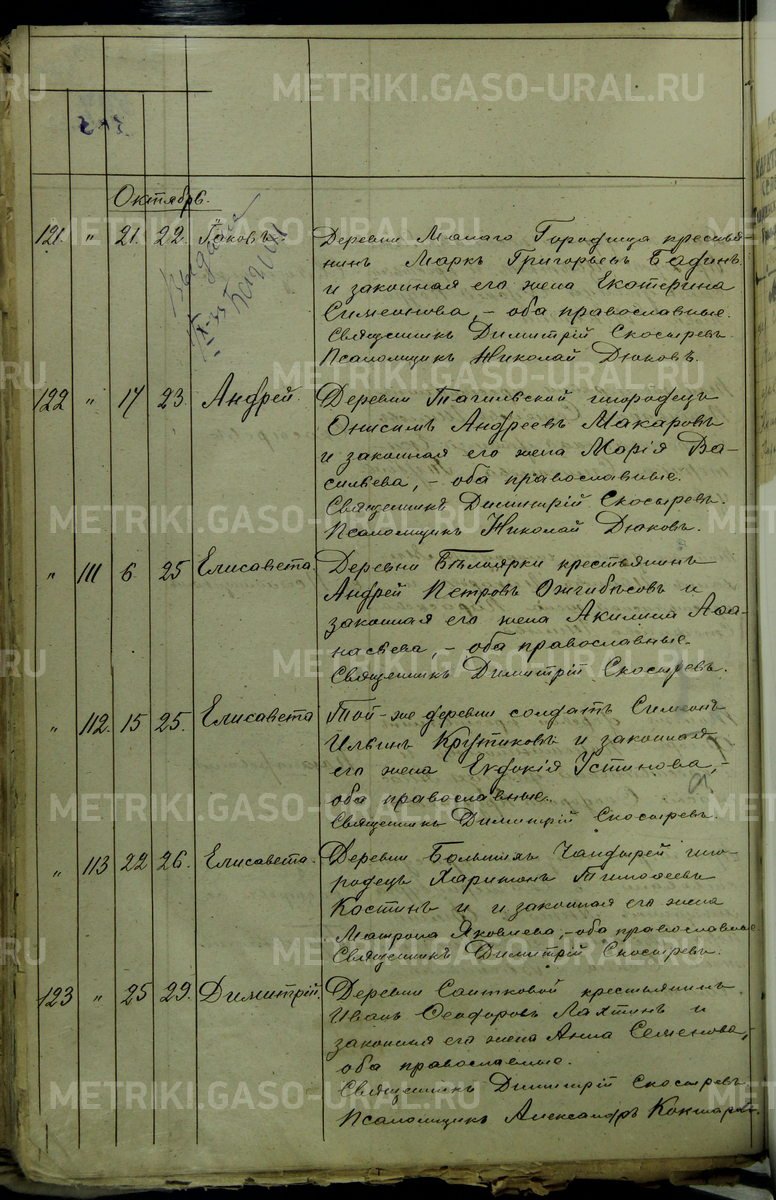 METRIKI.GASO-URAL.RU
Октябрь.
121. " 21. 22. Іаковъ.
Деревни Малаго Городища крестья-
нинъ Маркъ Григорьевъ
и законная его жена Екатерина
Симеонова, – оба православные.
Священникъ Димитрій Скосыревъ.
Псаломщикъ Николай Дюковъ.
Выдана
122 " 17 23. Андрей.
Деревни Тагильской инородецъ
Онисимъ Андреевъ Макаровъ
и законная его жена Марія Ва-
сильева, – оба православные.
Священникъ Димитрій Скосыревъ.
Псаломщикъ Николай Дюковъ.
" 111 6 25 Елисавета.
Деревни Бѣлоярки крестьянинъ
Андрей Петровъ Ожгибѣсовъ и
законная его жена Акилина Аѳа-
насьева, – оба православные.
Священникъ Димитрій Скосыревъ.
" 112. 15 25. Елисавета
Той-же деревни солдатъ Симеонъ
Ильинъ Крутиковъ и законная
его жена Евдокія Устинова, –
оба православные.
Священникъ Димитрій Скосыревъ.
" 113 22 26. Елисавета.
Деревни Большихъ ино-
родецъ Харитонъ Тимоѳеевъ
Костинъ и и законная его жена
Матрона Яковлева, – оба православные
Священникъ Димитрій Скосыревъ.
123 " 25 29. Димитрій.
Деревни Саитковой крестьянинъ
Иванъ Ѳеодоровъ Лахтинъ и
законная его жена Анна Семенова, –
оба православные.
Священникъ Димитрій Скосыревъ
Псаломщикъ Александръ